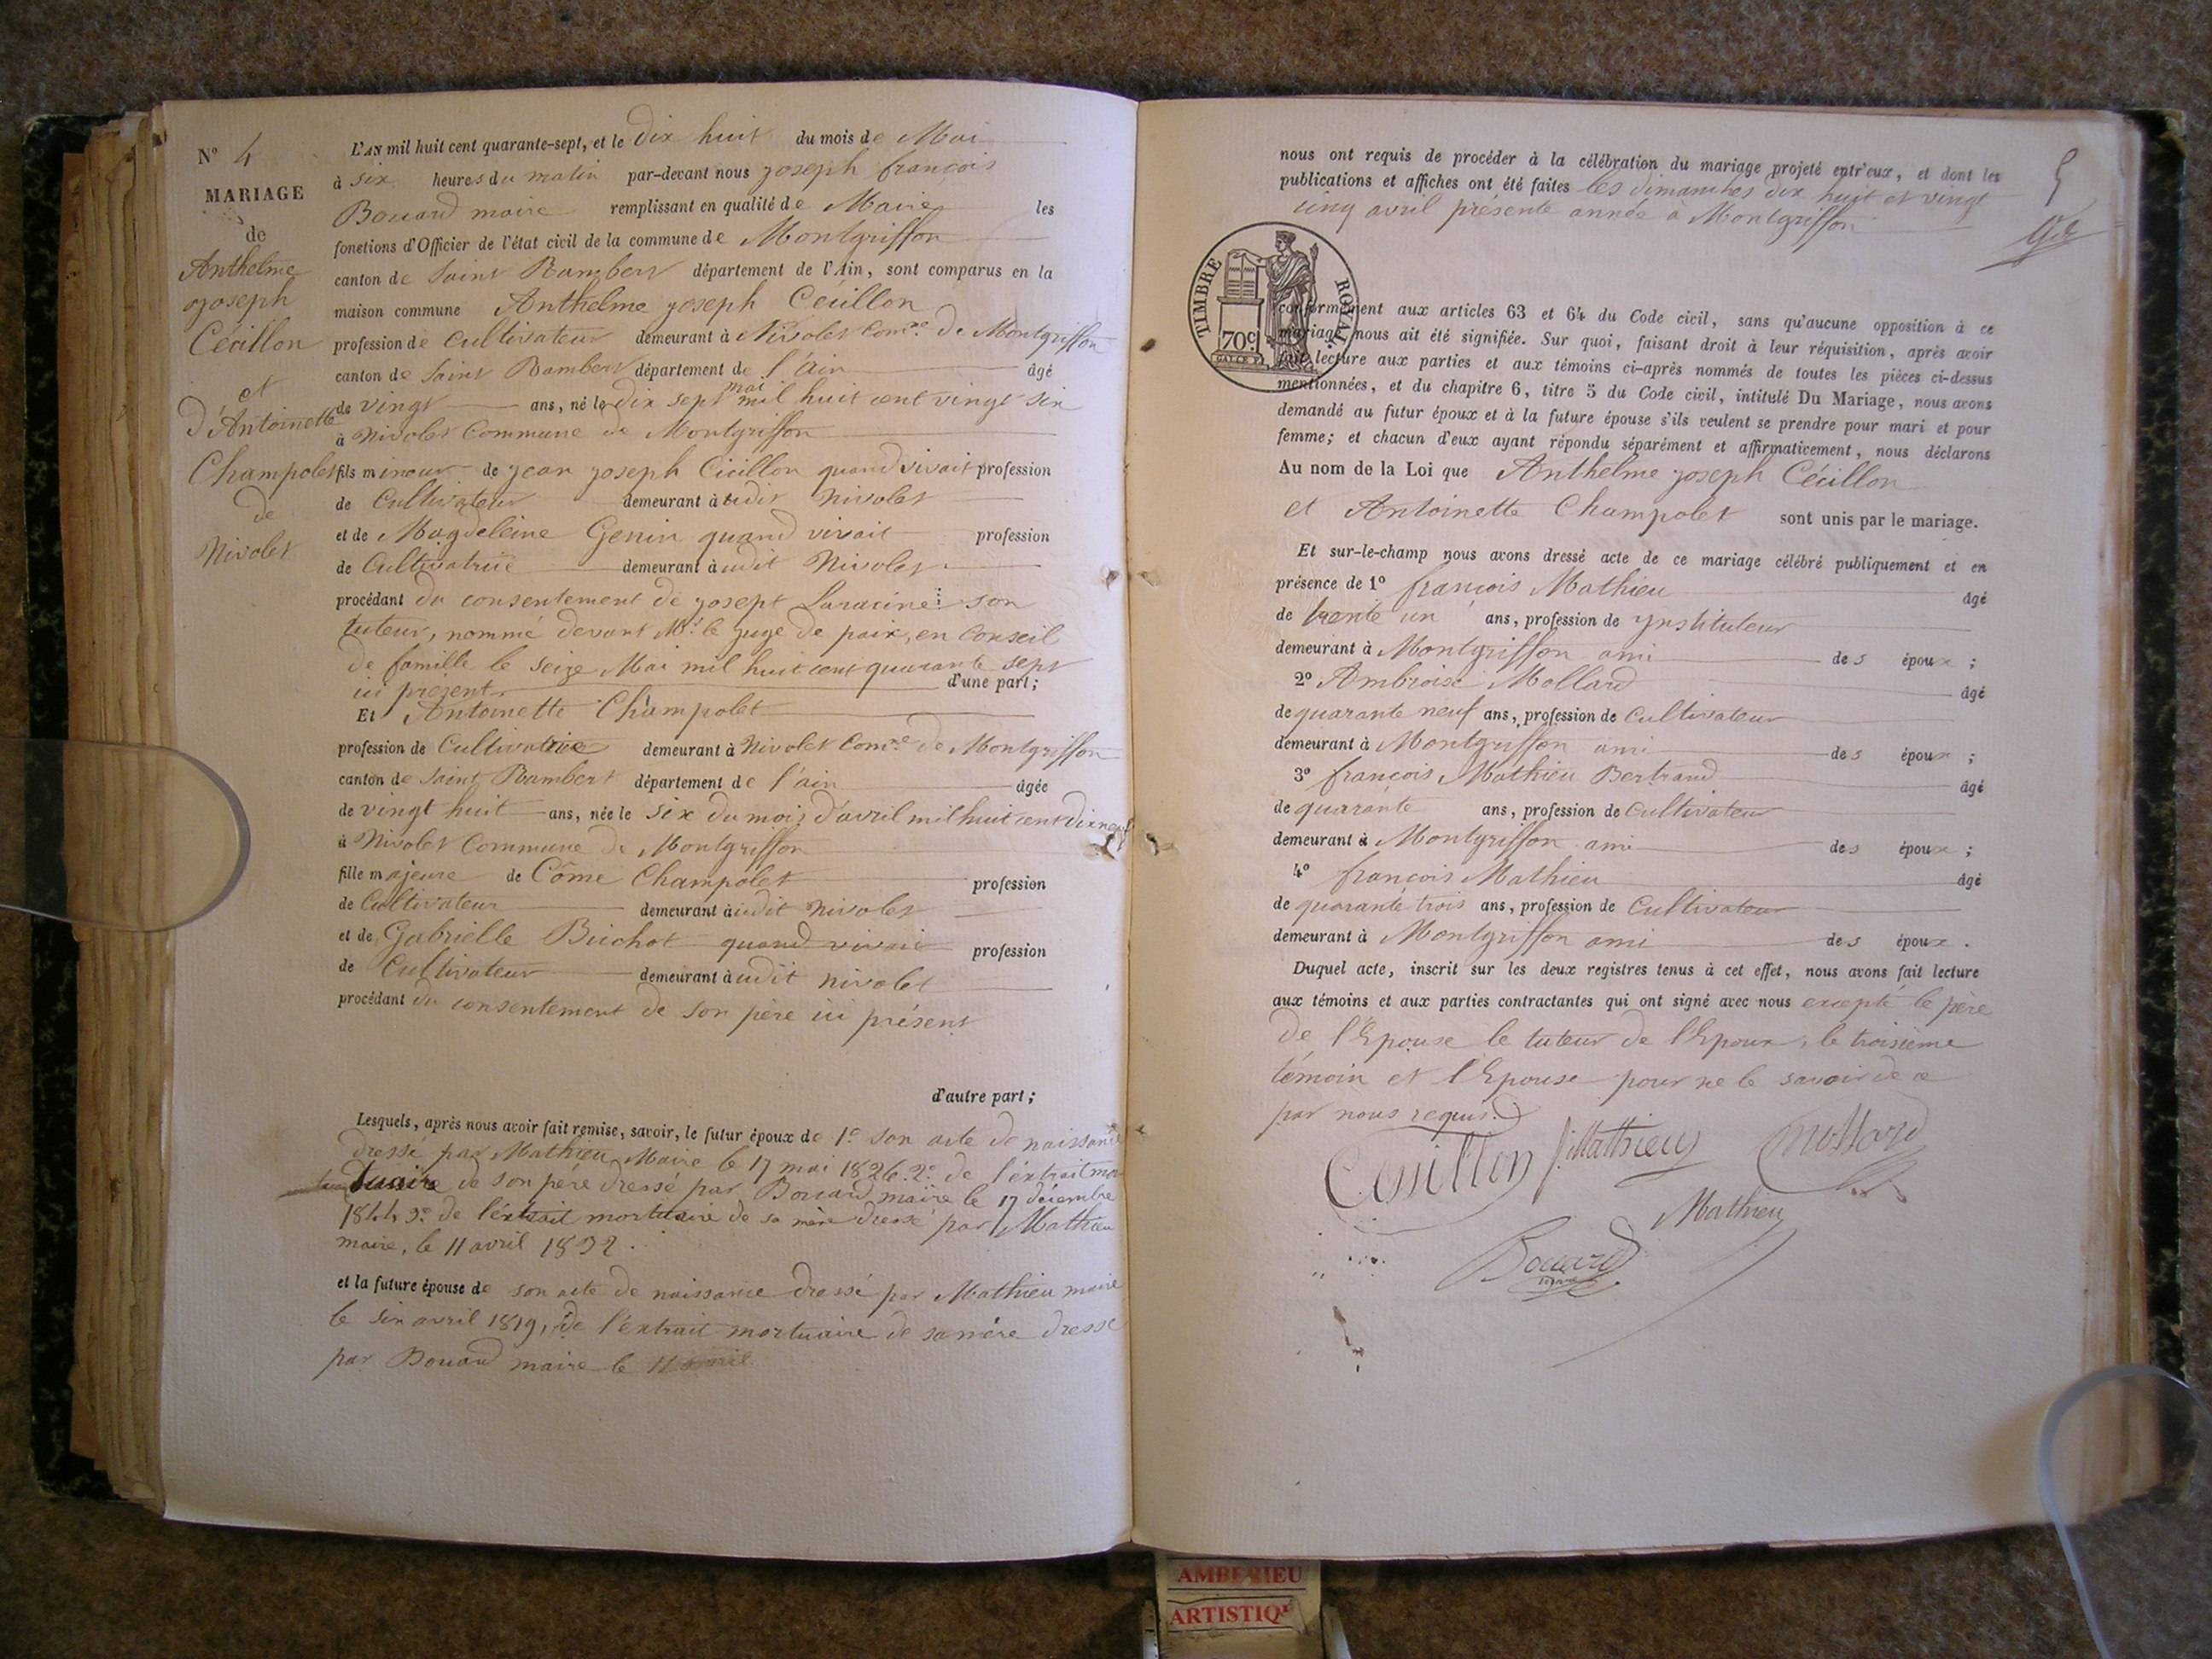 N° 4
MARIAGE
de
Anthelme
joseph
Cécillon
et
d'Antoinette
Champolet
de
Nivolet
L'AN mil huit cent quarante-sept, et le dix huit du mois de Mai
à six heures du matin par-devant nous joseph françois
Bouard maire remplissant en qualité de Maire les
fonctions d'Officier de l'état civil de la commune de Montgriffon
canton de Saint Rambert département de l'Ain, sont comparus en la
maison commune Anthelme joseph Cécillon
profession de Cultivateur demeurant à Nivolet Com.ne de Montgriffon
canton de Saint Rambert département de l'Ain âgé
de vingt ans, né le dix sept mai mil huit cent vingt six
à Nivolet Commune de Montgriffon
fils mineur de jean joseph Cécillon quand vivait profession
de Cultivateur demeurant à udit Nivolet
et de Magdeleine Genin quand vivait profession
de Cultivatrice demeurant à udit Nivolet
procédant du consentement de joseph Laracine son
tuteur, nommé devant Mr. le juge de paix, en Conseil
de famille le seize Mai mil huit cent quarante sept
ici présent d'une part;
Et Antoinette Champolet
profession de Cultivatrice demeurant à Nivolet Com.ne de Montgriffon
canton de Saint Rambert département de l'ain âgée
de vingt huit ans, née le six du mois d'avril mil huit cent dix neuf
à Nivolet Commune de Montgriffon
fille majeure de Côme Champolet profession
de Cultivateur demeurant à udit Nivolet
et de Gabrielle Buchot quand vivait profession
de Cultivateur demeurant à udit nivolet
procédant du consentement de son père ici présent
d'autre part;
Lesquels, après nous avoir fait remise, savoir, le futur époux de 1° son acte de naissance
dressé par Mathieu Maire le 17 mai 1826. 2° de l'extrait mor
tuaire de son père dressé par Bouard maire le 17 décembre
1844 3° de l'extrait mortuaire de sa mère dressé par Mathieu
maire, le 11 avril 1832.
et la future épouse de son acte de naissance dressé par Mathieu maire
le six avril 1819, de l'extrait mortuaire de sa mère dressé
par Bouard maire le 11
nous ont requis de procéder à la célébration du mariage projeté entr'eux, et dont les
publications et affiches ont été faites les dimanches dix huit et vingt
cinq avril présente année à Montgriffon
5
TIMBRE ROYAL
70c.
conformément aux articles 63 et 64 du Code civil, sans qu'aucune opposition à ce
mariage nous ait été signifiée. Sur quoi, faisant droit à leur réquisition, après avoir
fait lecture aux parties et aux témoins ci-après nommés de toutes les pièces ci-dessus
mentionnées, et du chapitre 6, titre 5 du Code civil, intitulé Du Mariage, nous avons
demandé au futur époux et à la future épouse s'ils veulent se prendre pour mari et pour
femme; et chacun d'eux ayant répondu séparément et affirmativement, nous déclarons
Au nom de la Loi que Anthelme joseph Cécillon
et Antoinette Champolet sont unis par le mariage.
Et sur-le-champ nous avons dressé acte de ce mariage célébré publiquement et en
présence de 1° françois Mathieu âgé
de trente un ans, profession de Ynstituteur
demeurant à Montgriffon ami des époux ;
2° Ambroise Mollard âgé
de quarante neuf ans, profession de Cultivateur
demeurant à Montgriffon ami des époux ;
3° françois Mathieu Bertrand âgé
de quarante ans, profession de Cultivateur
demeurant à Montgriffon ami des époux ;
4° françois Mathieu âgé
de quarante trois ans, profession de Cultivateur
demeurant à Montgriffon ami des époux .
Duquel acte, inscrit sur les deux registres tenus à cet effet, nous avons fait lecture
aux témoins et aux parties contractantes qui ont signé avec nous excepté le père
de l'Epouse le tuteur de l'Epoux, le troisième
témoin et l'Epouse pour ne le savoir de ce
par nous requis.
Cécillon f. Mathieu Mollard
Mathieu
Bouard
AMBERIEU
ARTISTIQ